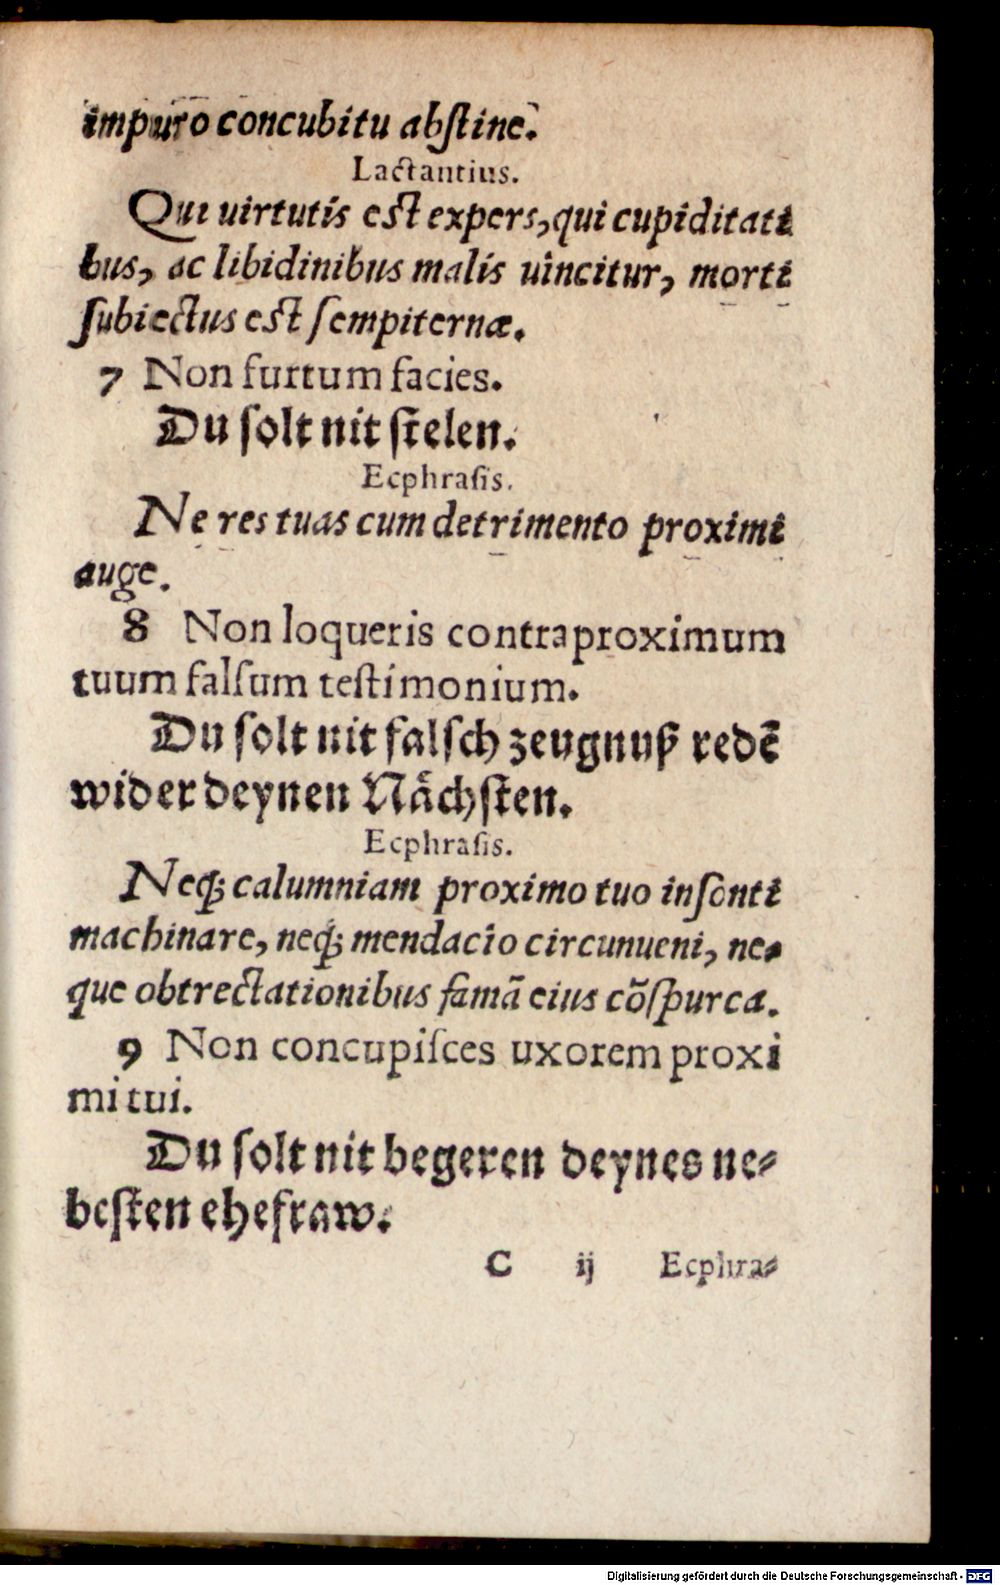 impuro concubitu abſtine.
Lactantius.
Qui uirtutis eſt expers, qui cupiditati
bus, ac libidinibus malis uincitur, morti
ſubiectus eſt ſempiternæ.
7 Non furtum facies.
Du ſolt nit ſtelen.
Ecphraſis.
Ne res tuas cum detrimento proximi
auge.
8 Non loqueris contra proximum
tuum falſum teſtimonium.
Du ſolt nit falſch zeugnuß redē
wider deynen Nächſten.
Ecphraſis.
Neq́; calumniam proximo tuo inſonti
machinare, neq́; mendacio circunueni, ne-
que obtrectationibus famā eius cōſpurca.
9 Non concupiſces uxorem proxi
mi tui.
Du ſolt nit begeren deynes ne-
beſten ehefraw.
C ij Ecphra-
Digitalisierung gefördert durch die Deutsche Forschungsgemeinschaft - DFG